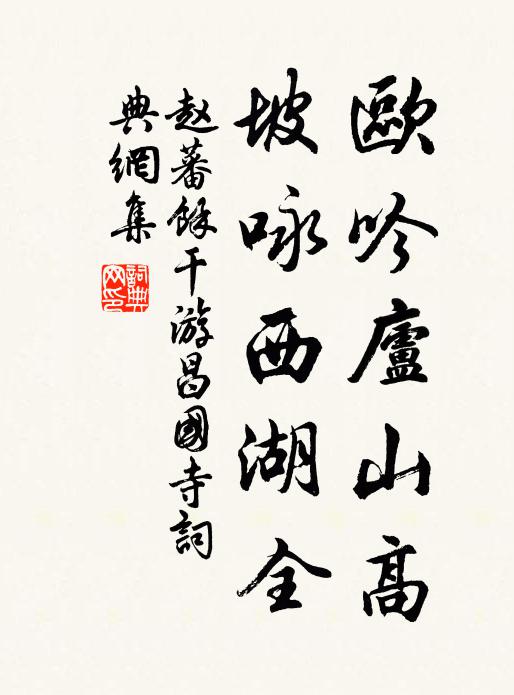 歐吟廬山高
坡咏西湖全
赵蕃餘干游昌國寺詞
典網集
詞典
网印